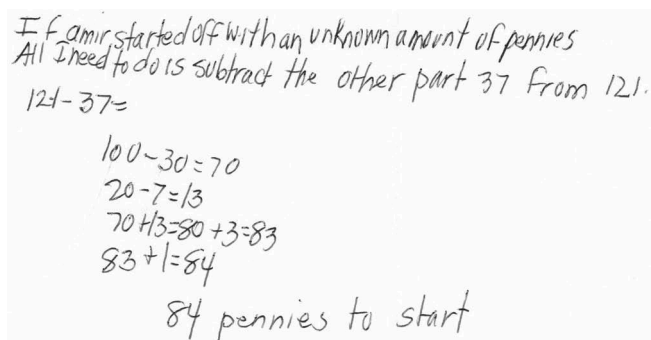 If amir started off with an unknown amount of pennies
All I need to do is subtract the other part 37 from 121.
121-37=
100-30=70
20-7=13
70+13=80+3=83
83+1=84
84 pennies to start